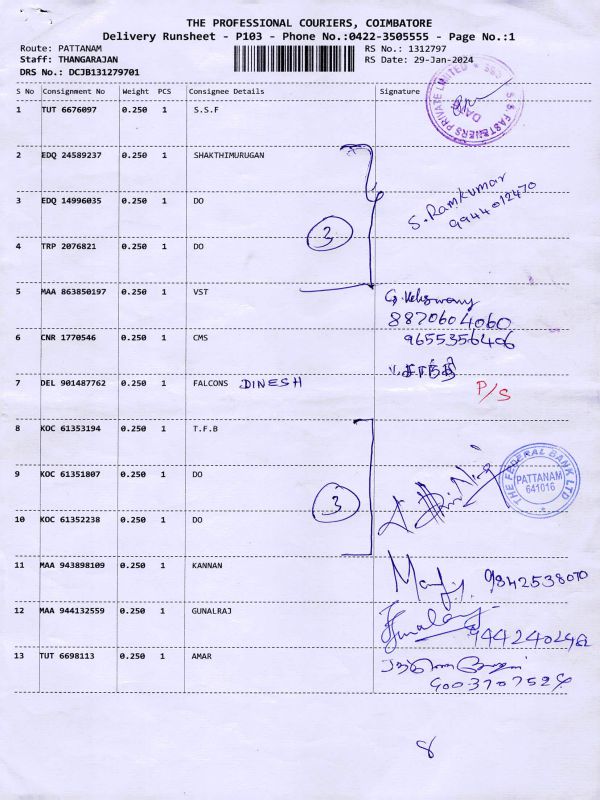 THE PROFESSIONAL COURIERS, COIMBATORE
Delivery Runsheet - P103 - Phone No.:0422-3505555 - Page No.:1
Route: PATTANAM RS No.: 1312797
Staff: THANGARAJAN RS Date: 29-Jan-2024
DRS No.: DCJB131279701
S No Consignment No Weight PCS Consignee Details Signature
1 TUT 6676097 0.250 1 S.S.F
S.S. FASTENERS PRIVATE LIMITED
2 EDQ 24589237 0.250 1 SHAKTHIMURUGAN
3 EDQ 14996035 0.250 1 DO S. Ramkumar
9944012470
3
4 TRP 2076821 0.250 1 DO
5 MAA 863850197 0.250 1 VST
8870604060
6 CNR 1770546 0.250 1 CMS 9655356406
7 DEL 901487762 0.250 1 FALCONS DINESH P/S
8 KOC 61353194 0.250 1 T.F.B
9 KOC 61351807 0.250 1 DO
THE FEDERAL BANK LTD
PATTANAM
641016
3
10 KOC 61352238 0.250 1 DO
11 MAA 943898109 0.250 1 KANNAN 9842538070
12 MAA 944132559 0.250 1 GUNALRAJ
13 TUT 6698113 0.250 1 AMAR
8